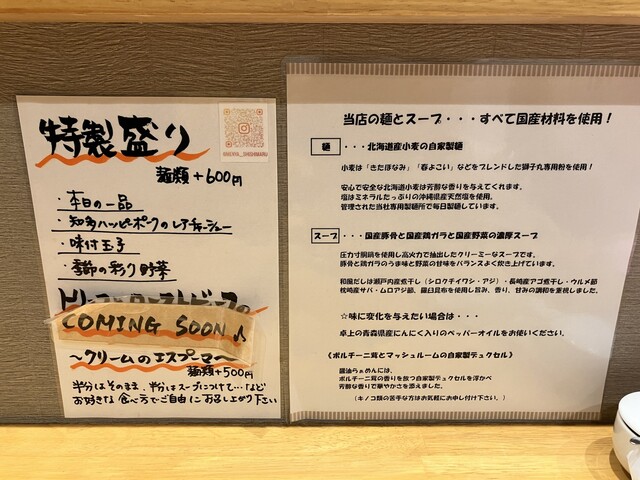 特製盛り
麺類+600円
・本日の一品
・知多ハッピーポークのレアチャーシュー
・味付玉子
・季節の彩り野菜
COMING SOON♪
～クリームのエスプーマ～
麺類+500円
半分はそのまま、半分はスープにつけて…など
お好きな食べ方でご自由にお召し上がり下さい
当店の麺とスープ・・・すべて国産材料を使用！
麺 ・・・北海道産小麦の自家製麺
小麦は「きたほなみ」「春よこい」などをブレンドした獅子丸専用粉を使用！
安心で安全な北海道小麦は芳醇な香りを与えてくれます。
塩はミネラルたっぷりの沖縄県産天然塩を使用。
管理された当社専用製麺所で毎日製麺しています。
スープ ・・・国産豚骨と国産鶏ガラと国産野菜の濃厚スープ
圧力寸胴鍋を使用し高火力で抽出したクリーミーなスープです。
豚骨と鶏ガラのうま味と野菜の甘味をバランスよく炊き上げています。
和風だしは瀬戸内産煮干し（シロクチイワシ・アジ）・長崎産アゴ煮干し・ウルメ節
枕崎産サバ・ムロアジ節、羅臼昆布を使用し旨み、香り、甘みの調和を重視しました。
☆味に変化を与えたい場合は・・・
卓上の青森県産にんにく入りのペッパーオイルをお使いください。
《ポルチーニ茸とマッシュルームの自家製デュクセル》
醤油らぁめんには、
ポルチーニ茸の香りを放つ自家製デュクセルを浮かべ
芳醇な香りで華やかさを添えました。
（キノコ類の苦手な方はお気軽にお申し付け下さい。）